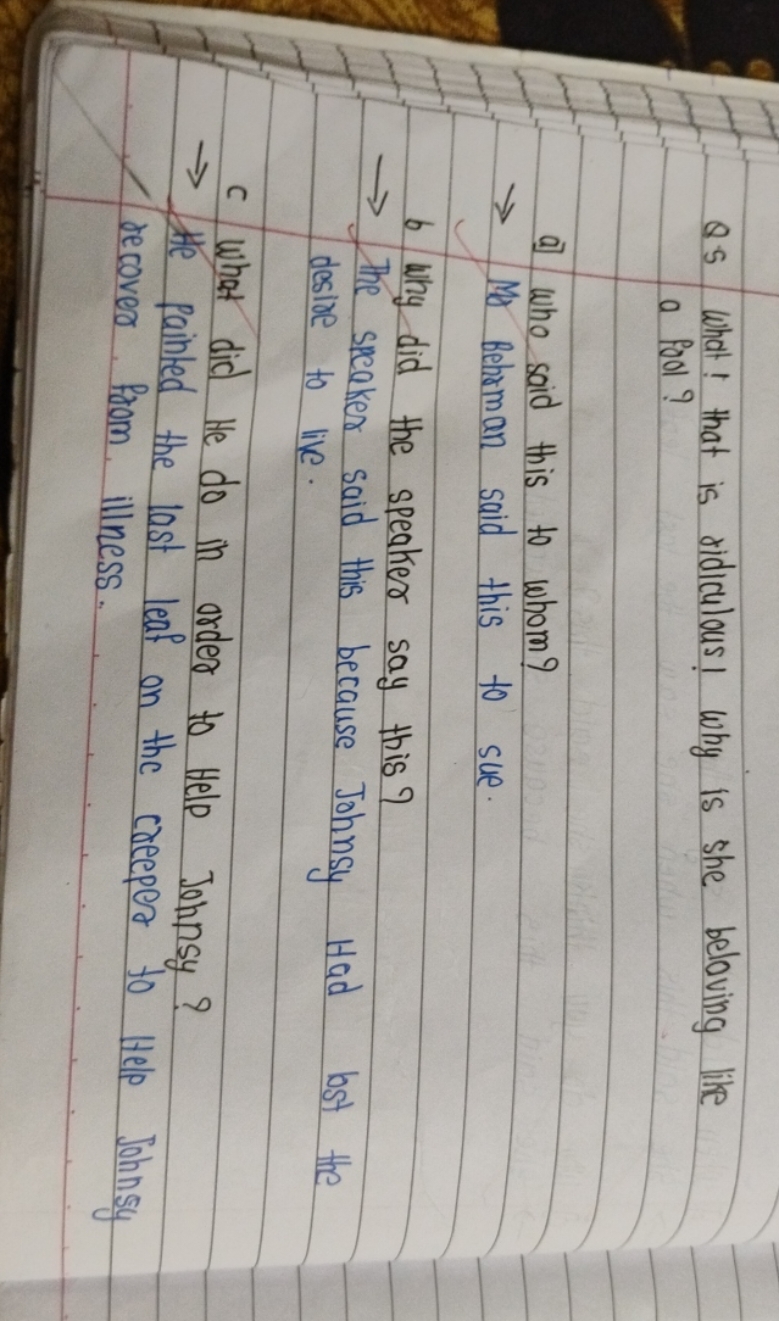 Q.5 What! that is ridiculous! Why is she beloving like
a fool?
a] who said this to whom?
→ Mr Behrman said this to sue.
b Why did the speaker say this?
→ The speaker said this because Johnsy Had lost the
desire to live.
c What did He do in order to Help Johnsy?
→ He painted the last leaf on the creeper to Help Johnsy
recover from illness.